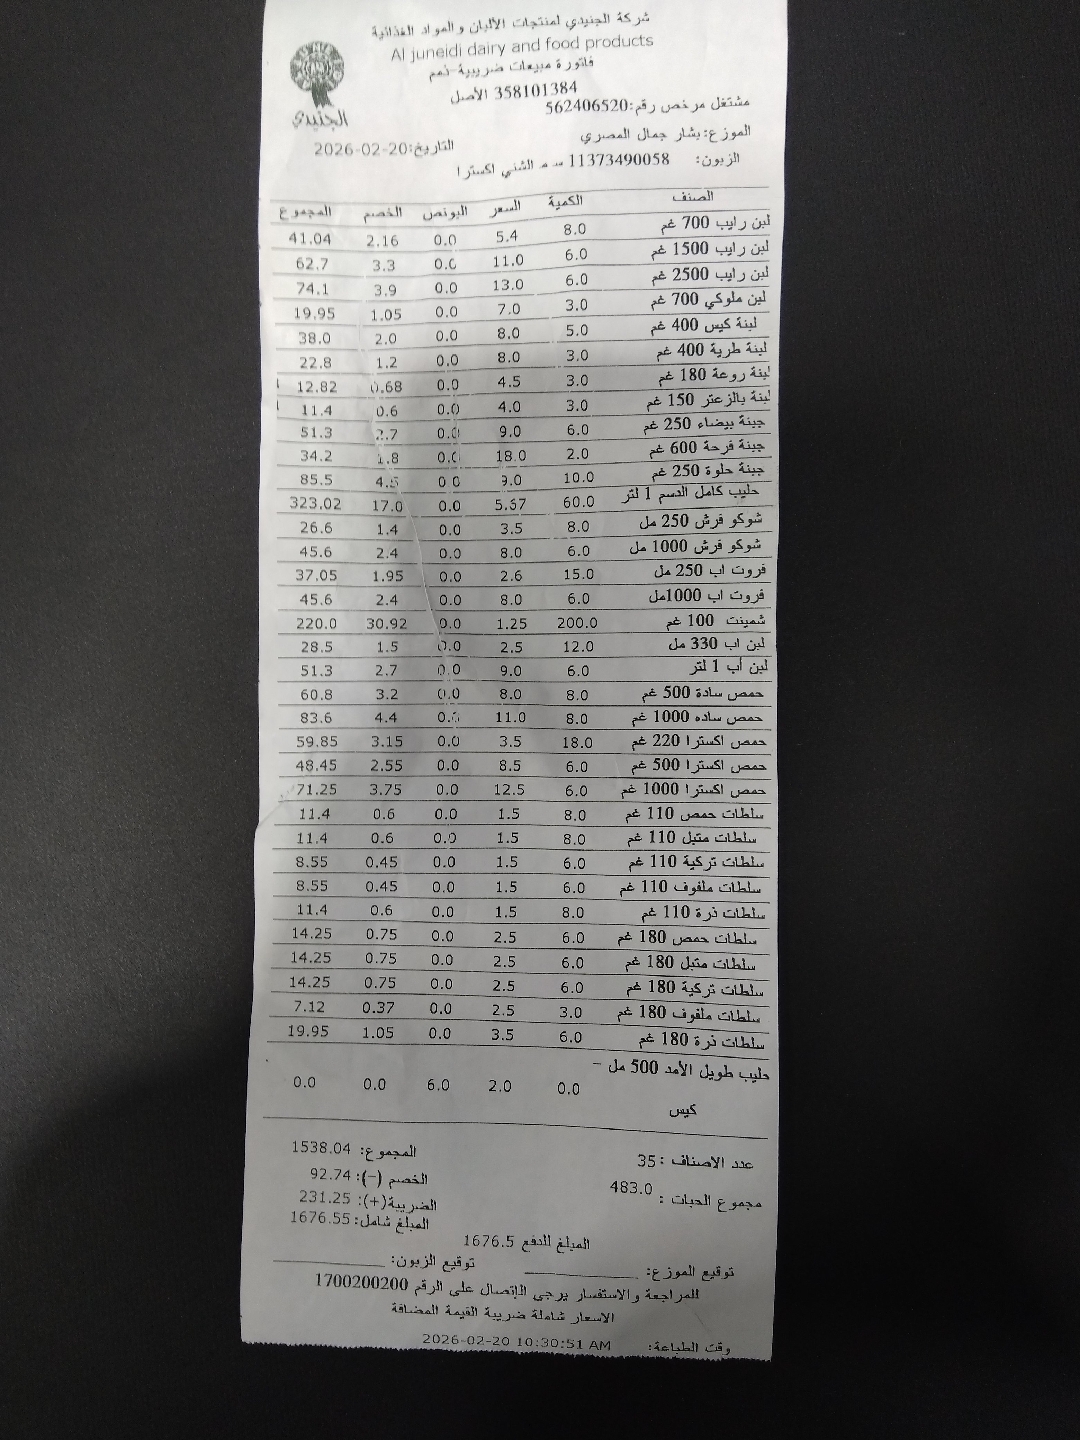 شركة الجنيدي لمنتجات الألبان والمواد الغذائية
Al juneidi dairy and food products
فاتورة مبيعات ضريبية-نعم
358101384 الأصل
مشتغل مرخص رقم:562406520
الجنيدي
الموزع: بشار جمال المصري
التاريخ:2026-02-20
الزبون: 11373490058 س م الشني اكسترا
الصنف الكمية السعر البونص الخصم المجموع
لبن رايب 700 غم 8.0 5.4 0.0 2.16 41.04
لبن رايب 1500 غم 6.0 11.0 0.0 3.3 62.7
لبن رايب 2500 غم 6.0 13.0 0.0 3.9 74.1
لبن ملوكي 700 غم 3.0 7.0 0.0 1.05 19.95
لبنة كيس 400 غم 5.0 8.0 0.0 2.0 38.0
لبنة طرية 400 غم 3.0 8.0 0.0 1.2 22.8
لبنة روعة 180 غم 3.0 4.5 0.0 0.68 12.82
لبنة بالزعتر 150 غم 3.0 4.0 0.0 0.6 11.4
جبنة بيضاء 250 غم 6.0 9.0 0.0 2.7 51.3
جبنة فرحة 600 غم 2.0 18.0 0.0 1.8 34.2
جبنة حلوة 250 غم 10.0 9.0 0.0 4.5 85.5
حليب كامل الدسم 1 لتر 60.0 5.67 0.0 17.0 323.02
شوكو فرش 250 مل 8.0 3.5 0.0 1.4 26.6
شوكو فرش 1000 مل 6.0 8.0 0.0 2.4 45.6
فروت اب 250 مل 15.0 2.6 0.0 1.95 37.05
فروت اب 1000مل 6.0 8.0 0.0 2.4 45.6
شمينت 100 غم 200.0 1.25 0.0 30.92 220.0
لبن اب 330 مل 12.0 2.5 0.0 1.5 28.5
لبن أب 1 لتر 6.0 9.0 0.0 2.7 51.3
حمص سادة 500 غم 8.0 8.0 0.0 3.2 60.8
حمص ساده 1000 غم 8.0 11.0 0.0 4.4 83.6
حمص اكسترا 220 غم 18.0 3.5 0.0 3.15 59.85
حمص اكسترا 500 غم 6.0 8.5 0.0 2.55 48.45
حمص اكسترا 1000 غم 6.0 12.5 0.0 3.75 71.25
سلطات حمص 110 غم 8.0 1.5 0.0 0.6 11.4
سلطات متبل 110 غم 8.0 1.5 0.0 0.6 11.4
سلطات تركية 110 غم 6.0 1.5 0.0 0.45 8.55
سلطات ملفوف 110 غم 6.0 1.5 0.0 0.45 8.55
سلطات ذرة 110 غم 8.0 1.5 0.0 0.6 11.4
سلطات حمص 180 غم 6.0 2.5 0.0 0.75 14.25
سلطات متبل 180 غم 6.0 2.5 0.0 0.75 14.25
سلطات تركية 180 غم 6.0 2.5 0.0 0.75 14.25
سلطات ملفوف 180 غم 3.0 2.5 0.0 0.37 7.12
سلطات ذرة 180 غم 6.0 3.5 0.0 1.05 19.95
حليب طويل الأمد 500 مل -
0.0 2.0 6.0 0.0 0.0
كيس
عدد الاصناف :35 المجموع: 1538.04
الخصم (-): 92.74
مجموع الحبات : 483.0 الضريبة(+): 231.25
المبلغ شامل: 1676.55
المبلغ للدفع 1676.5
توقيع الموزع: توقيع الزبون:
للمراجعة والاستفسار يرجى الإتصال على الرقم 1700200200
الاسعار شاملة ضريبة القيمة المضافة
وقت الطباعة: 2026-02-20 10:30:51 AM